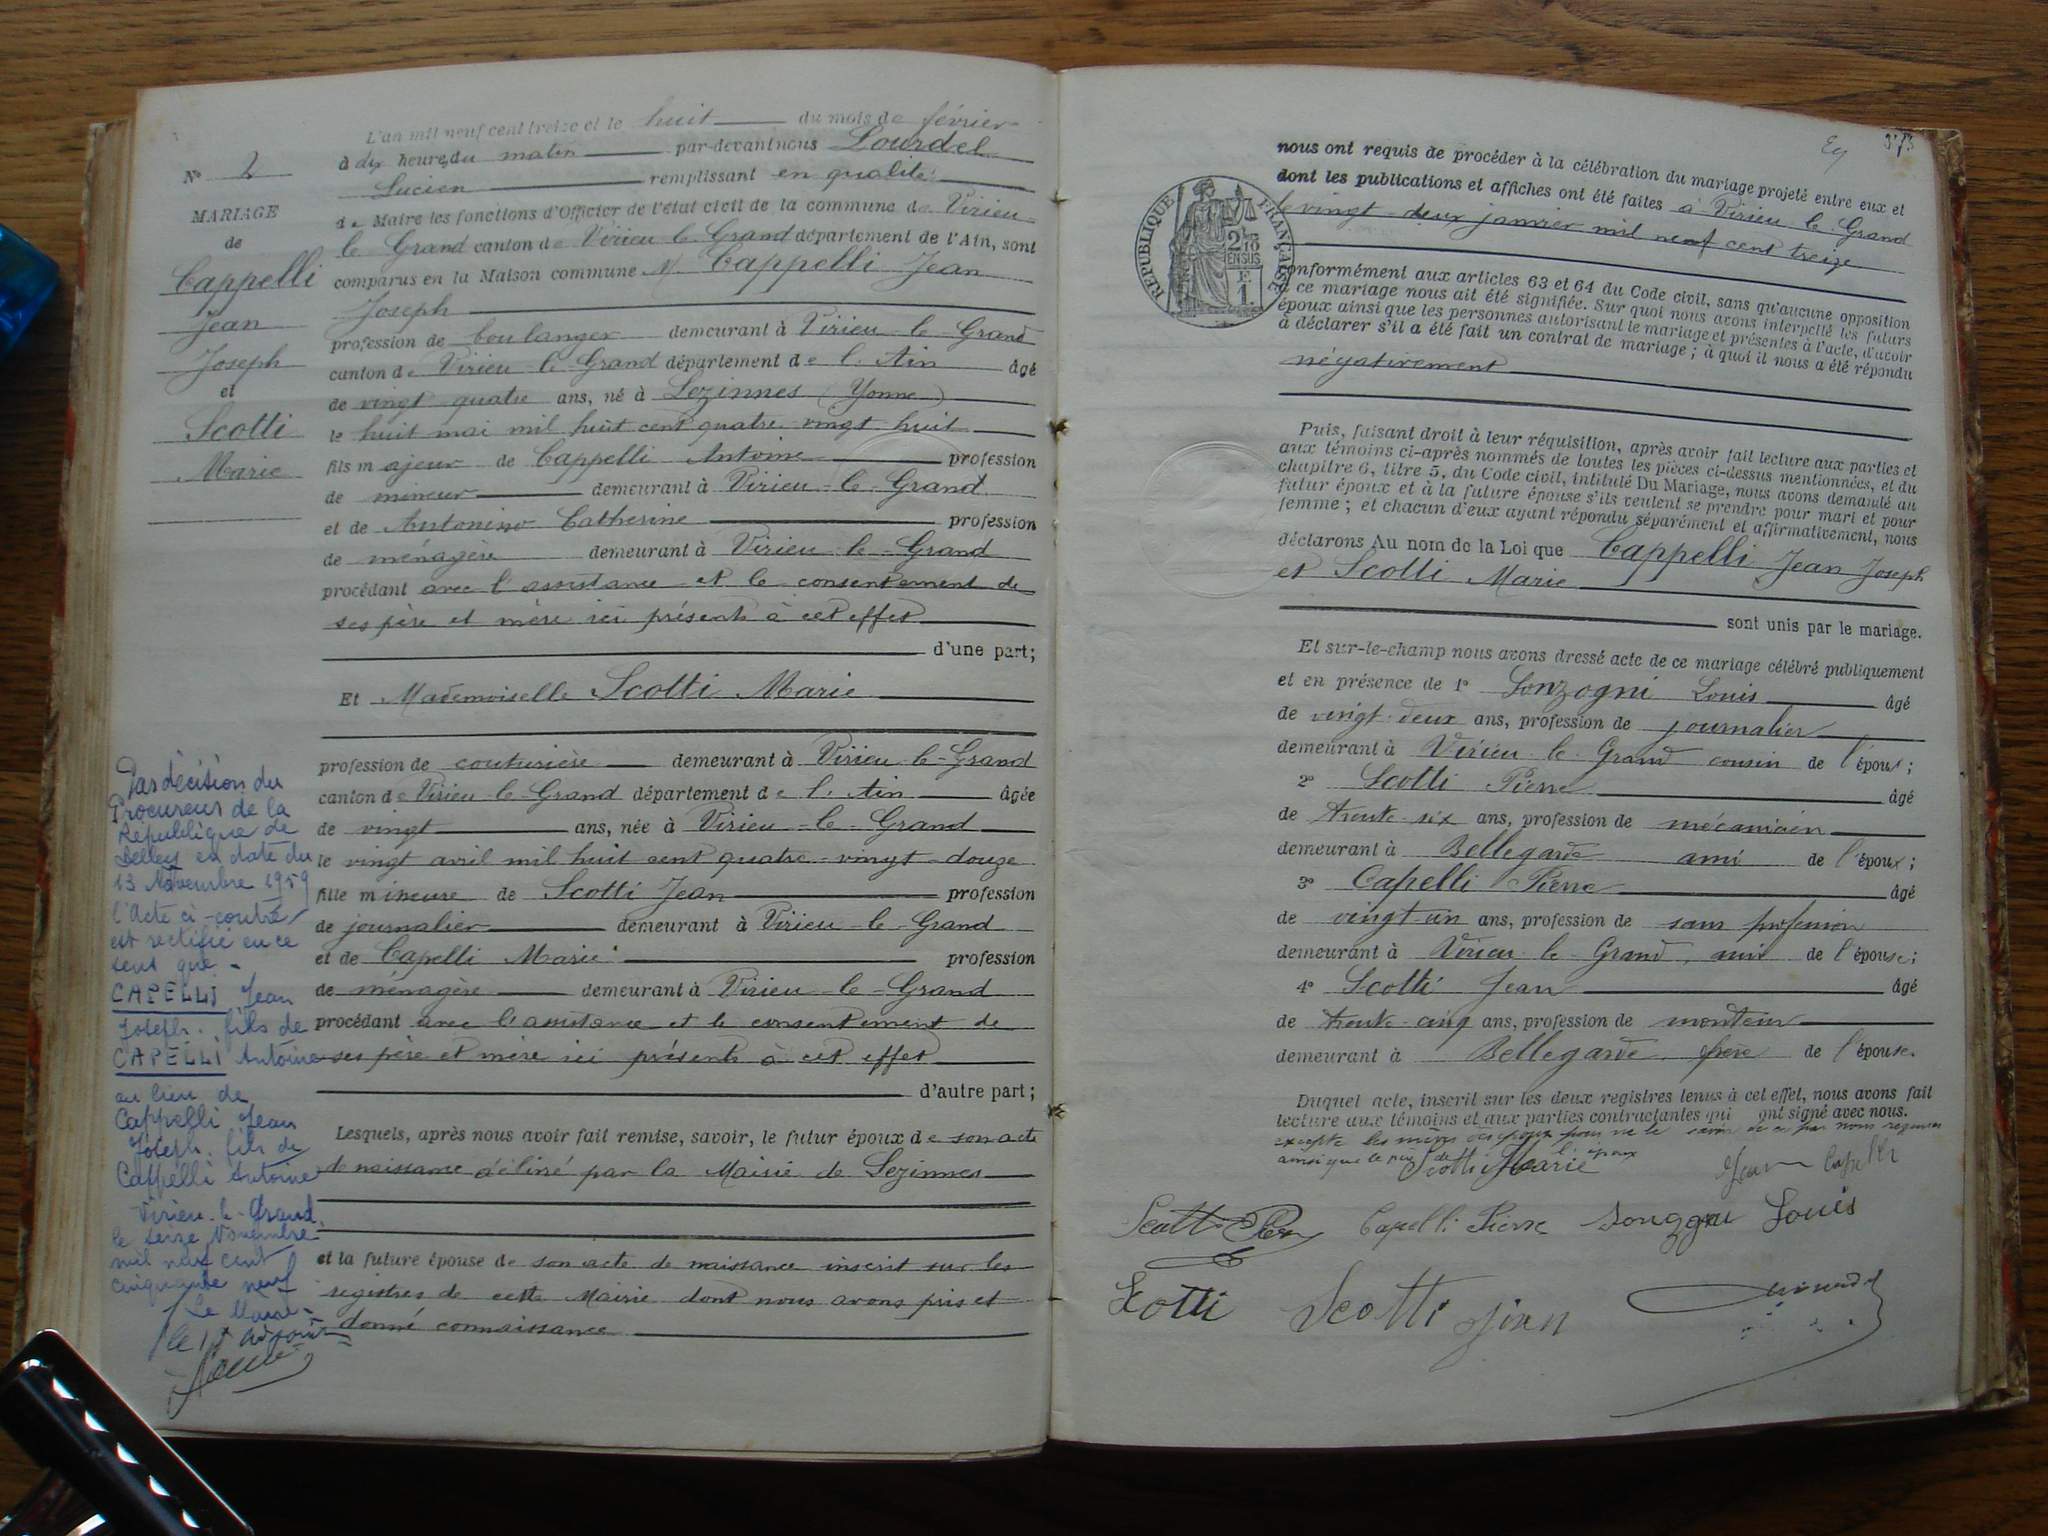 L'an mil neuf cent treize et le huit du mois de février
à dix heures du matin par-devant nous Lourdel
Lucien remplissant en qualité
de Maire les fonctions d'Officier de l'état civil de la commune de Virieu
le Grand canton de Virieu le Grand département de l'Ain, sont
comparus en la Maison commune M. Cappelli Jean
Joseph
profession de boulanger demeurant à Virieu-le-Grand
canton de Virieu-le-Grand département de l'Ain âgé
de vingt quatre ans, né à Lezinnes (Yonne)
le huit mai mil huit cent quatre-vingt huit
fils majeur de Cappelli Antoine profession
de mineur demeurant à Virieu-le-Grand
et de Antonino Catherine profession
de ménagère demeurant à Virieu-le-Grand
procédant avec l'assistance et le consentement de
ses père et mère ici présents à cet effet
d'une part;
Et Mademoiselle Scotti Marie
profession de couturière demeurant à Virieu-le-Grand
canton de Virieu-le-Grand département de l'Ain âgée
de vingt ans, née à Virieu-le-Grand
le vingt avril mil huit cent quatre-vingt-douze
fille mineure de Scotti Jean profession
de journalier demeurant à Virieu-le-Grand
et de Capelli Marie profession
de ménagère demeurant à Virieu-le-Grand
procédant avec l'assistance et le consentement de
ses père et mère ici présents à cet effet
d'autre part;
Lesquels, après nous avoir fait remise, savoir, le futur époux de son acte
de naissance délivré par la Mairie de Lezinnes
et la future épouse de son acte de naissance inscrit sur les
registres de cette Mairie dont nous avons pris et
donné connaissance
N° 2
MARIAGE
de
Cappelli
Jean
Joseph
et
Scotti
Marie
Par décision du
Procureur de la
République de
Belley en date du
13 Novembre 1959
l'Acte ci-contre
est rectifié en ce
sens que -
CAPELLI Jean
Joseph. fils de
CAPELLI Antoine
au lieu de
Cappelli Jean
Joseph. fils de
Cappelli Antoine
Virieu-le-Grand,
le seize Novembre
mil neuf cent
cinquante neuf
Le Maire
le 1er adjoint
373
nous ont requis de procéder à la célébration du mariage projeté entre eux et
dont les publications et affiches ont été faites à Virieu-le-Grand
le vingt-deux janvier mil neuf cent treize
RÉPUBLIQUE FRANÇAISE
2/10
EN SUS
F.
1.
conformément aux articles 63 et 64 du Code civil, sans qu'aucune opposition
à ce mariage nous ait été signifiée. Sur quoi nous avons interpellé les futurs
époux ainsi que les personnes autorisant le mariage et présentes à l'acte, d'avoir
à déclarer s'il a été fait un contrat de mariage; à quoi il nous a été répondu
négativement
Puis, faisant droit à leur réquisition, après avoir fait lecture aux parties et
aux témoins ci-après nommés de toutes les pièces ci-dessus mentionnées, et du
chapitre 6, titre 5, du Code civil, intitulé Du Mariage, nous avons demandé au
futur époux et à la future épouse s'ils veulent se prendre pour mari et pour
femme; et chacun d'eux ayant répondu séparément et affirmativement, nous
déclarons Au nom de la Loi que Cappelli Jean Joseph
et Scotti Marie
sont unis par le mariage.
Et sur-le-champ nous avons dressé acte de ce mariage célébré publiquement
et en présence de 1° Sonzogni Louis âgé
de vingt-deux ans, profession de journalier
demeurant à Virieu-le-Grand cousin de l'époux;
2° Scotti Pierre âgé
de trente-six ans, profession de mécanicien
demeurant à Bellegarde ami de l'époux;
3° Capelli Pierre âgé
de vingt-un ans, profession de sans profession
demeurant à Virieu-le-Grand, ami de l'épouse;
4° Scotti Jean âgé
de trente-cinq ans, profession de monteur
demeurant à Bellegarde frère de l'épouse.
Duquel acte, inscrit sur les deux registres tenus à cet effet, nous avons fait
lecture aux témoins et aux parties contractantes qui ont signé avec nous.
excepté les mères des époux pour ne le savoir de ce par nous requises
ainsi que le père de l'époux
Scotti Marie Jean Capelli
Scotti Capelli Pierre Louis
Scotti Scotti Jean